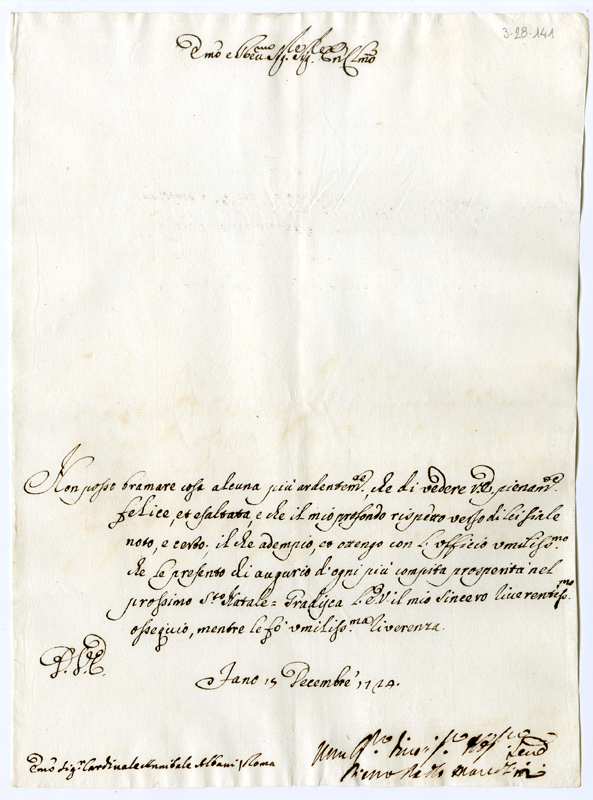 3-28-141
Em̃o e R̃ẽv.mo Sig.re Sig.re Pñe Cl̃mo
Non posso bramare cosa alcuna più ardentem.te, che di vedere V.E. pienam.te
felice, et esaltata, e che il mio profondo rispetto verso di lei sia le
noto, e certo. il che adempio, et ottengo con l'officio umiliss.mo
che le presento di augurio d'ogni più compita prosperità nel
prossimo S.to Natale = Gradisca l'E.V. il mio sincero riverentiss.mo
ossequio, mentre le fò umiliss.ma riverenza.
D. V. E.
Fano 15 Decembre 1724.
Em̃o Sig.r Cardinale Annibale Albani Roma